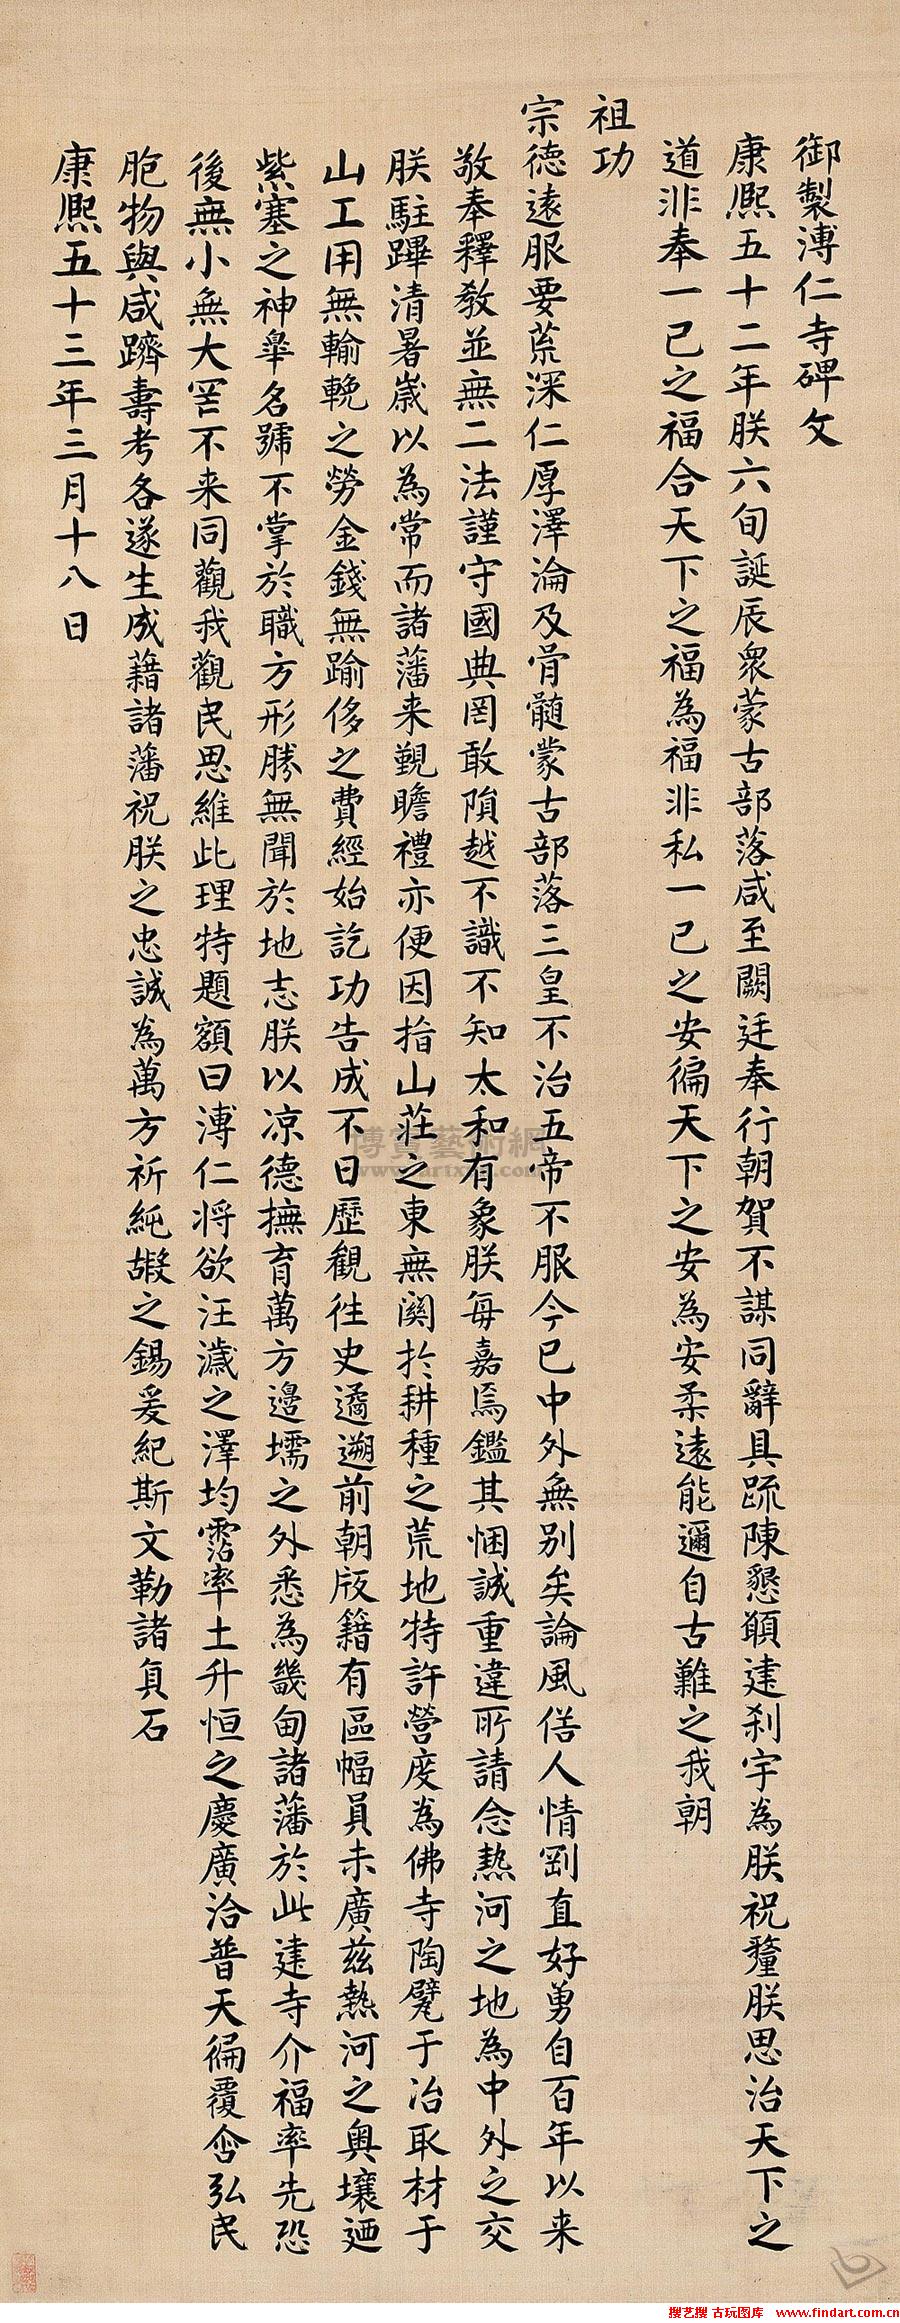 御製溥仁寺碑文
康熙五十二年朕六旬誕辰衆蒙古部落咸至闕廷奉行朝賀不謀同辭具疏陳懇願建刹宇為朕祝釐朕思治天下之
道非奉一已之福合天下之福為福非私一已之安徧天下之安為安柔遠能邇自古難之我朝
祖功
宗德遠服要荒深仁厚澤淪及骨髓蒙古部落三皇不治五帝不服今已中外無别矣論風俗人情剛直好勇自百年以来
敬奉釋教並無二法謹守國典罔敢隕越不識不知太和有象朕每嘉焉鑑其悃誠重違所請念熱河之地為中外之交
朕駐蹕清暑歲以為常而諸藩来覲瞻禮亦便因指山莊之東無関於耕種之荒地特許營度為佛寺陶甓于冶取材于
山工用無輸輓之勞金錢無踰侈之費經始訖功告成不日歷觀往史遹遡前朝版籍有區幅員未廣兹熱河之奥壤廼
紫塞之神臯名號不掌於職方形勝無聞於地志朕以凉德撫育萬方邊壖之外悉為畿甸諸藩於此建寺介福率先恐
後無小無大罔不来同觀我觀民思維此理特題額曰溥仁将欲汪濊之澤均霑率土升恒之慶廣洽普天徧覆含弘民
胞物與咸躋壽考各遂生成藉諸藩祝朕之忠誠為萬方祈純嘏之錫爰紀斯文勒諸貞石
康熙五十三年三月十八日
博寶藝術網
搜艺搜 古玩图库 www.findart.com.cn